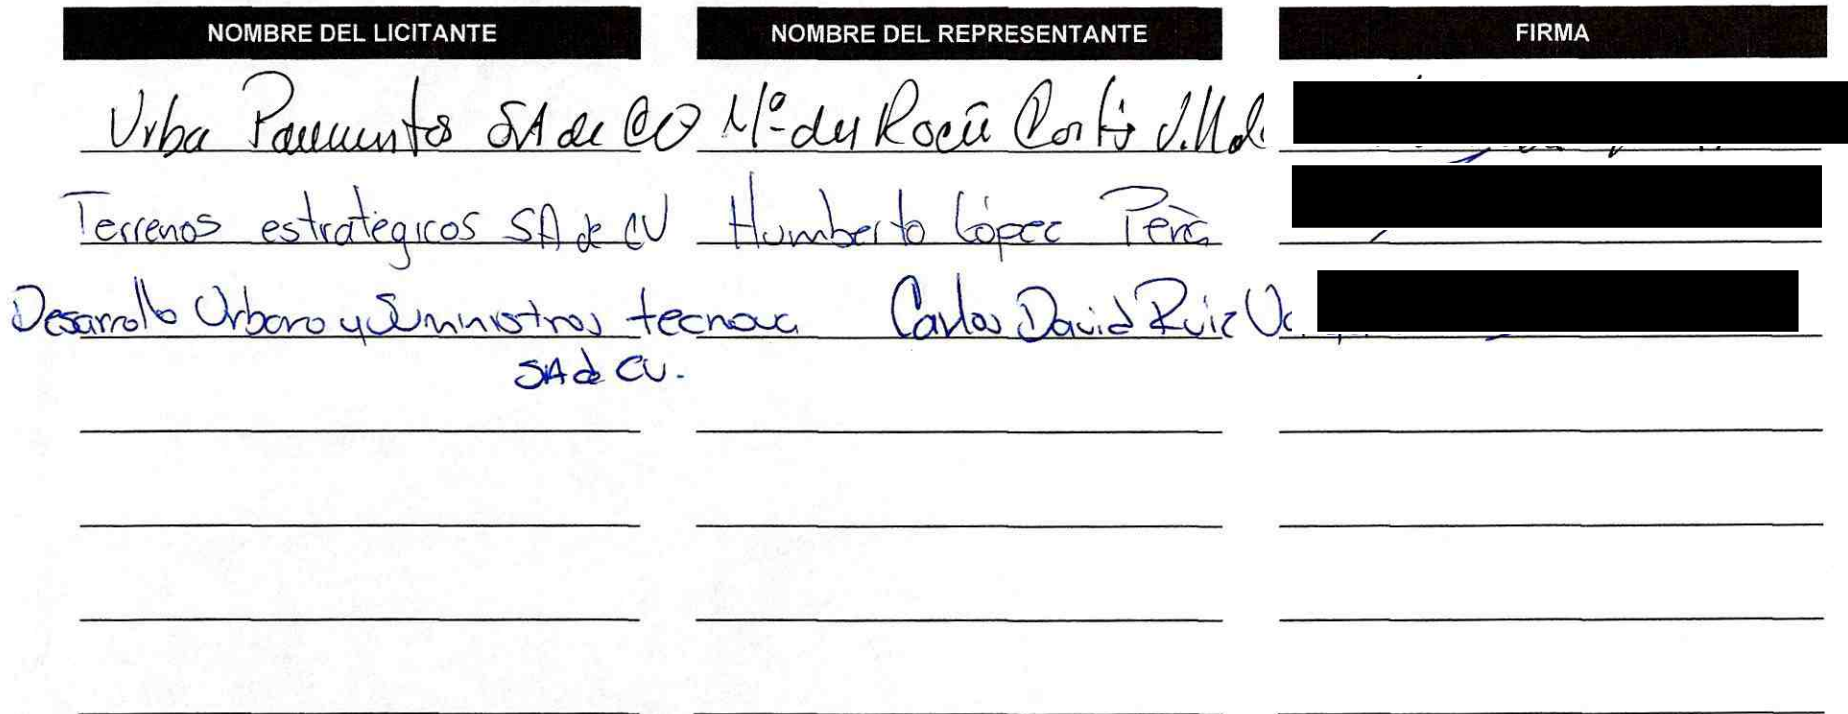 NOMBRE DEL LICITANTE NOMBRE DEL REPRESENTANTE FIRMA
Urba Pavimentos SA de CV Mª del Rocío Cortés
Terrenos estratégicos SA de CV Humberto López Peña
Desarrollo Urbano y Suministros tecnova Carlos David Ruiz
SA de CV.